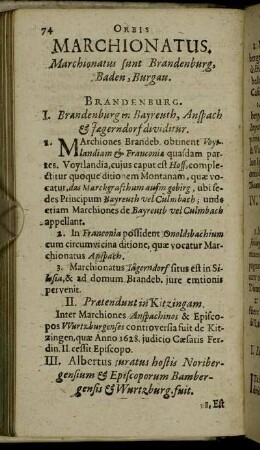 74 ORBIS
MARCHIONATUS.
Marchionatus sunt Brandenburg,
Baden, Burgau.
BRANDENBURG.
I. Brandenburg in Bayreuth, Anspach
& Jägerndorf dividitur.
1. MArchiones Brandeb. obtinent Voyt-
landiam & Franconiæ quasdam par-
tes. Voytlandia, cujus caput est Hoff, comple-
ctitur quoque ditionem Montanam, quæ vo-
catur, das Marckgraffthum aufm gebirg, ubi se-
des Principum Bayreuth vel Culmbach; unde
etiam Marchiones de Bayreuth vel Culmbach
appellant.
2. In Franconia possident Onoldsbachium
cum circumvicina ditione, quæ vocatur Mar-
chionatus Anspach.
3. Marchionatus Jägerndorf situs est in Si-
lesia, & ad domum Brandeb. jure emtionis
pervenit.
II. Prætendunt in Kitzingam.
Inter Marchiones Anspachinos & Episco-
pos Wurtzburgenses controversia fuit de Kit-
zingen, quæ Anno 1628. judicio Cæsaris Fer-
din. II. cessit Episcopo.
III. Albertus juratus hostis Noriber-
gensium & Episcoporum Bamber-
gensis & Wurtzburg. fuit.
Est